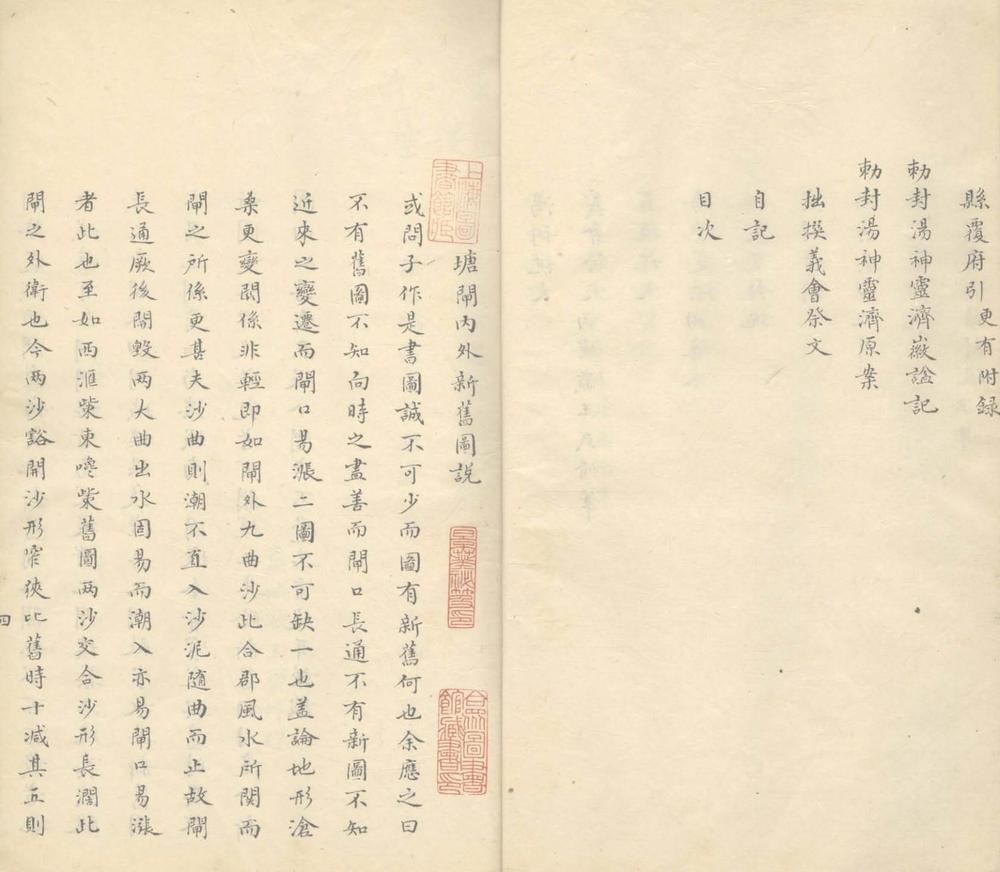 縣覆府引更有附錄
勅封湯神靈濟嶽諡記
勅封湯神靈濟原案
拙撰義會祭文
自記
目次
上海圖書館藏
塘閘內外新舊圖説
合眾圖書館藏書印
或問子作是書圖誠不可少而圖有新舊何也余應之曰
不有舊圖不知向時之盡善而閘口長通不有新圖不知
近來之變遷而閘口易漲二圖不可缺一也盖論地形滄
桑更變関係非輕即如閘外九曲沙此合郡風水所関而
閘之所係更甚夫沙曲則潮不直入沙泥隨曲而止故閘
長通厥後開毀两大曲出水固易而潮入亦易閘口易漲
者此也至如西滙嘴東嘴舊圖两沙交合沙形長濶此
閘之外衛也今两沙豁開沙形窄狹比舊時十减其五則
四